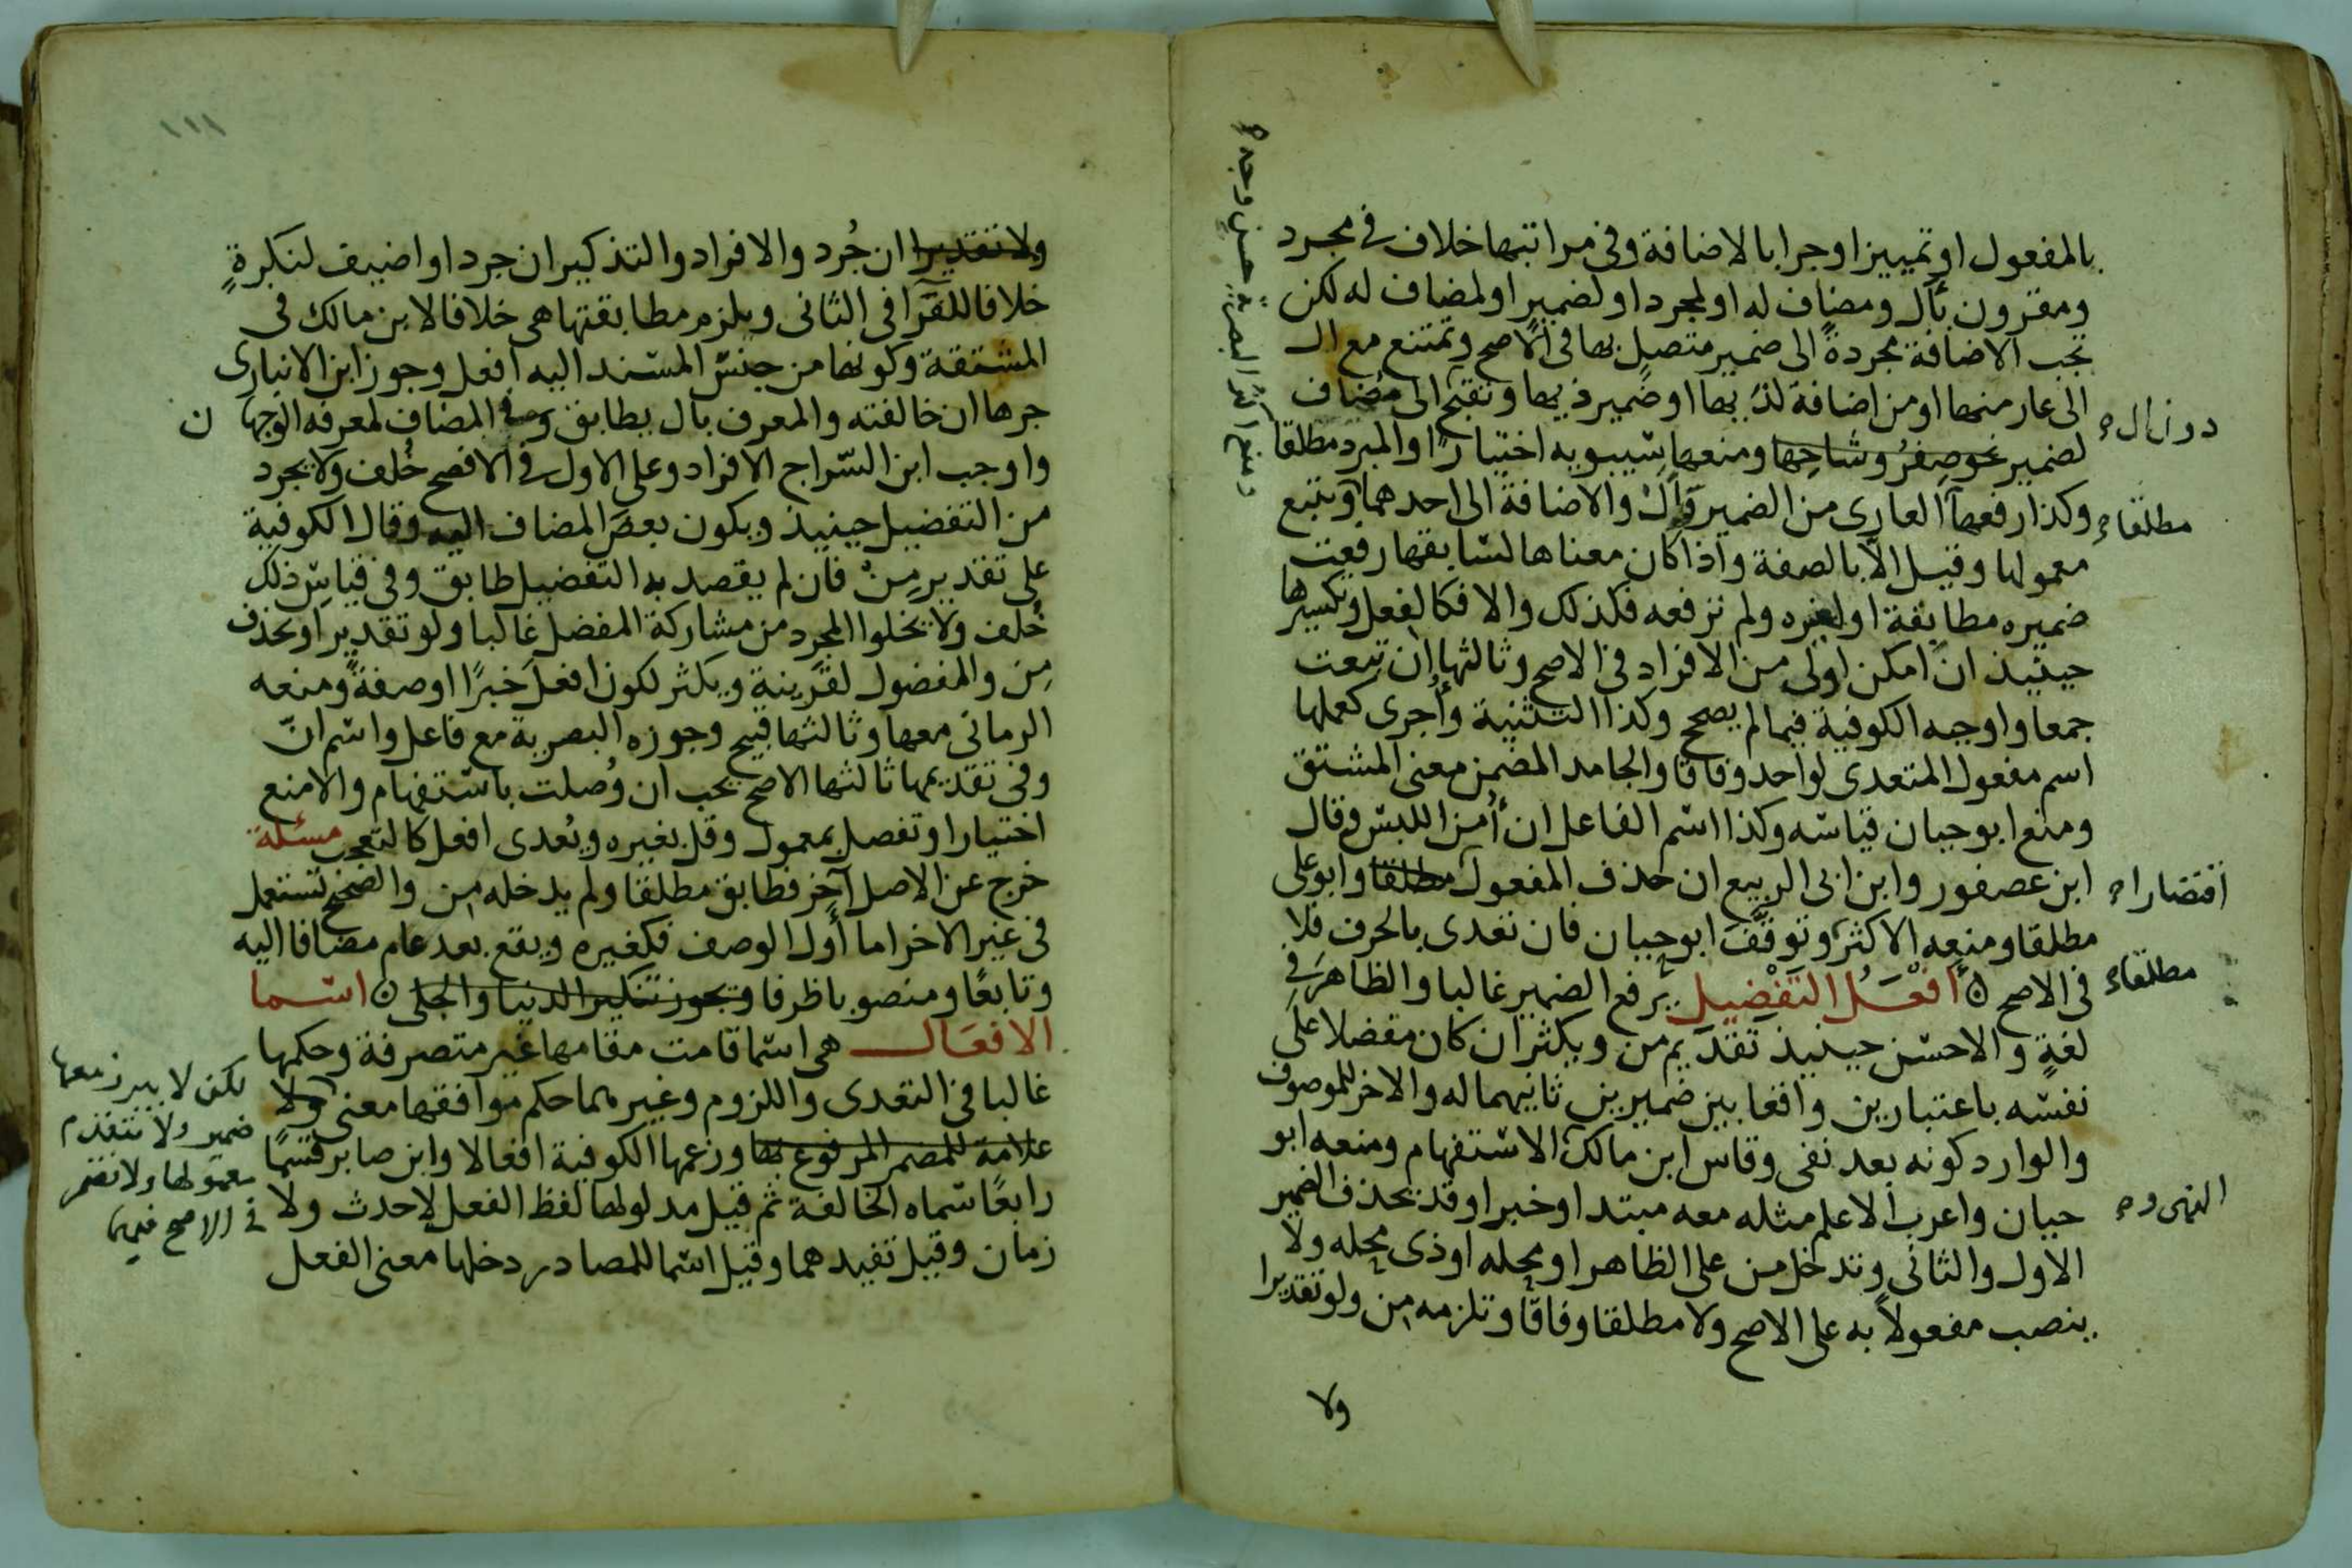 بالمفعول او تمييزا وجرا بالاضافة وفى مراتبها خلاف فى مجرد
ومقرون بأل ومضاف له او لمجرد او لضمير او لمضاف له لكن
تجب الاضافة مجردةً الى ضمير متصل بها فى الاصح وتمتنع مع ال
الى عار منها او من اضافة لذى بها او ضمير ذيها وتقبح الى مضاف
لضمير نحو صِفرُ وشاحِها ومنعها سيبويه اختيارا والمبرد مطلقا
وكذا رفعها العارى من الضمير وأل والاضافة الى احدهما وتتبع
معمولها وقيل الا بالصفة واذا كان معناها لسابقها رفعت
ضميره مطابقة او لغيره ولم ترفعه فكذلك والا فكالفعل وتكسيرها
حينيذ ان امكن اولى من الافراد فى الاصح وثالثها إن تبعت
جمعا واوجبه الكوفية فيما لم يصحح وكذا التثنية وأُجرى كعملها
اسم مفعول المتعدى لواحد وفاقا والجامد المضمن معنى المشتق
ومنع ابو حيان قياسه وكذا اسم الفاعل ان أُمن اللبس وقال
ابن عصفور وابن ابى الربيع ان حذف المفعول مطلقا وابو على
مطلقا ومنعه الاكثر وتوقَّفَ ابو حيان فان تعدى بالحرف فلا
فى الاصح ۞ أفْعَلُ التفْضِيل يرفع الضمير غالبا والظاهر فى
لغةٍ والاحسن حينيذ تقديم من ويكثر ان كان مفضلا على
نفسه باعتبارين واقعا بين ضميرين ثانيهما له والاخر للموصوف
والوارد كونه بعد نفى وقاس ابن مالك الاستفهام ومنعه ابو
حيان واعرب الاعلم مثله معه مبتدا وخبرا وقد يحذف الضمير
الاول والثانى وتدخل من على الظاهر او محله او ذى محله ولا
ينصب مفعولاً به على الاصح ولا مطلقا وفاقا وتلزمه من ولو تقديرا
ولا
دون ال
مطلقا
اقتصارا
مطلقا
النهى و
ولا تقديرا ان جُرد والافراد والتذكير ان جرد او اضيف لنكرةٍ
خلافا للفرا فى الثانى ويلزم مطابقتها هى خلافا لابن مالك فى
المشتقة وكونها من جنس المسند اليه افعل وجوز ابن الانبارى
جرها ان خالفته والمعرف بال يطابق وفى المضاف لمعرفه الوجهان
واوجب ابن السراج الافراد وعلى الاول فى الافصح خُلف ولا يجرد
من التفضيل حينيذ ويكون بعض المضاف اليه وقال الكوفية
على تقدير مِنْ فان لم يقصد به التفضيل طابق وفى قياس ذلك
خُلف ولا يخلوا المجرد من مشاركة المفضل غالبا ولو تقديرا وتحذف
مِن والمفضول لقرينة ويكثر لكون افعل خبرًا او صفةً ومنعه
الرمانى معها وثالثها قبيح وجوزه البصرية مع فاعل واسم انّ
وفى تقديمها ثالثها الاصح يجب ان وُصلت باستفهام والا منع
اختيارا وتفصل بمعمول وقل بغيره ويُعدى افعل كالتعجب مسئلة
خرج عن الاصل آخر فطابق مطلقا ولم يدخله من والصحيح تستعمل
فى غير الاخر اما أول الوصف فكغيره ويقع بعد عام مضافا اليه
وتابعًا ومنصوبا ظرفا وتجوز تنكير الدنيا والجلى ۞ اسما
الافعال هى اسما قامت مقامها غير متصرفة وحكمها
غالبا فى التعدى واللزوم وغيرهما حكم موافقها معنى ولا
علامة للمضمر المرفوع بها وزعمها الكوفية افعالا وابن صابر قسمًا
رابعًا سماه الخالفة ثم قيل مدلولها لفظ الفعل لاحدث ولا
زمان وقيل تفيدهما وقيل اسما للمصادر دخلها معنى الفعل
لكن لا يبرز معها
ضمير ولا يتقدم
معمولها ولا تضمر
فى الاصح فيهما
١١١